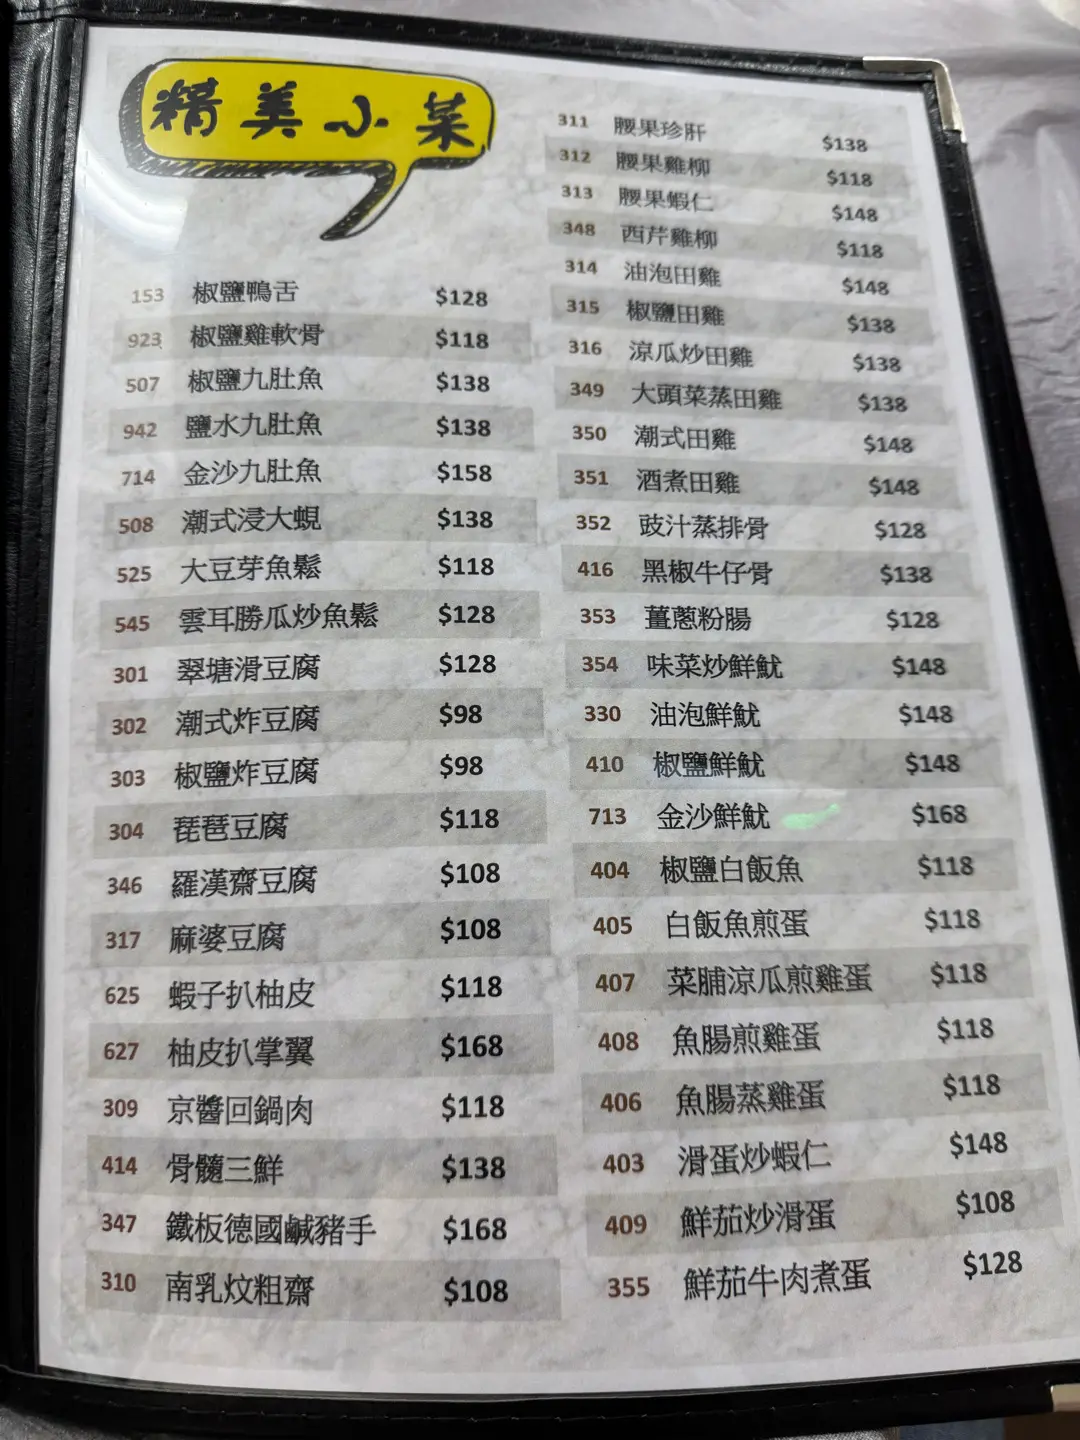 精美小菜
153 椒鹽鴨舌 $128
923 椒鹽雞軟骨 $118
507 椒鹽九肚魚 $138
942 鹽水九肚魚 $138
714 金沙九肚魚 $158
508 潮式浸大蜆 $138
525 大豆芽魚鬆 $118
545 雲耳勝瓜炒魚鬆 $128
301 翠塘滑豆腐 $128
302 潮式炸豆腐 $98
303 椒鹽炸豆腐 $98
304 琵琶豆腐 $118
346 羅漢齋豆腐 $108
317 麻婆豆腐 $108
625 蝦子扒柚皮 $118
627 柚皮扒掌翼 $168
309 京醬回鍋肉 $118
414 骨髓三鮮 $138
347 鐵板德國鹹豬手 $168
310 南乳炆粗齋 $108
311 腰果珍肝 $138
312 腰果雞柳 $118
313 腰果蝦仁 $148
348 西芹雞柳 $118
314 油泡田雞 $148
315 椒鹽田雞 $138
316 涼瓜炒田雞 $138
349 大頭菜蒸田雞 $138
350 潮式田雞 $148
351 酒煮田雞 $148
352 豉汁蒸排骨 $128
416 黑椒牛仔骨 $138
353 薑蔥粉腸 $128
354 味菜炒鮮魷 $148
330 油泡鮮魷 $148
410 椒鹽鮮魷 $148
713 金沙鮮魷 $168
404 椒鹽白飯魚 $118
405 白飯魚煎蛋 $118
407 菜脯涼瓜煎雞蛋 $118
408 魚腸煎雞蛋 $118
406 魚腸蒸雞蛋 $118
403 滑蛋炒蝦仁 $148
409 鮮茄炒滑蛋 $108
355 鮮茄牛肉煮蛋 $128